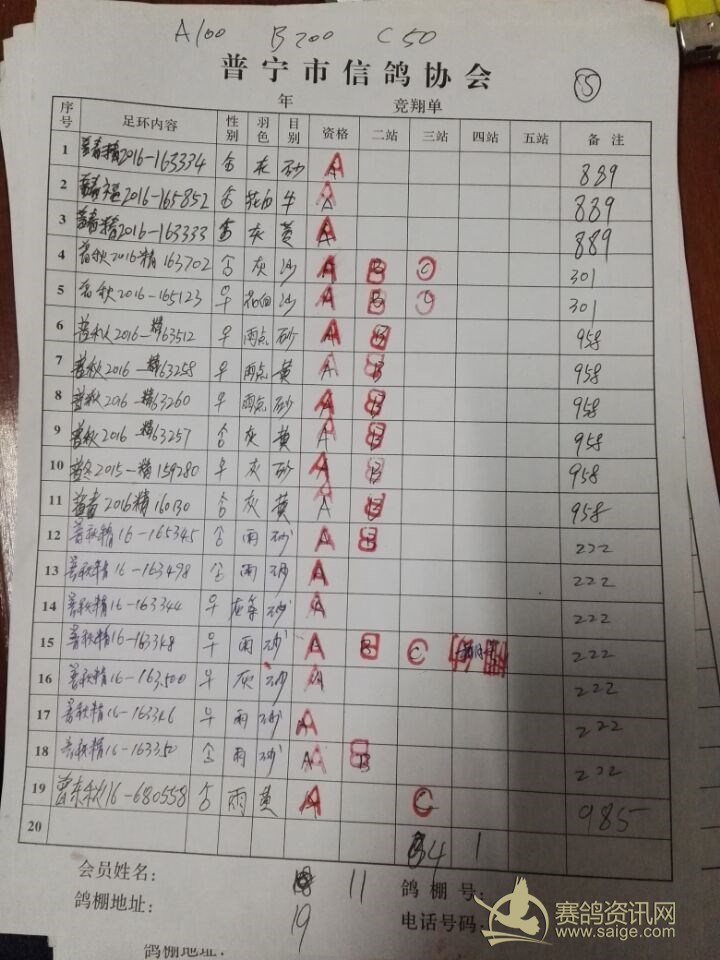 A100 B200 C50
普宁市信鸽协会
55
年 竞翔单
序号 足环内容 性别 羽色 目别 资格 二站 三站 四站 五站 备注
1 普春精2016-163334 舍 灰 砂 A 889
2 2016-165852 舍 花白 牛 A 889
3 普春精2016-163333 舍 灰 黄 A 889
4 普秋2016精163702 舍 灰 沙 A B C 301
5 普秋2016-165123 早 花白 沙 A B C 301
6 普秋2016-精163512 早 雨点 砂 A B 958
7 普秋2016-精163258 早 雨点 黄 A B 958
8 普秋2016-精163260 早 雨点 砂 A B 958
9 普秋2016-精163257 舍 灰 黄 A B 958
10 普冬2015-精159280 早 灰 砂 A B 958
11 普春2016精160130 舍 灰 黄 A B 958
12 普秋精16-165345 舍 雨 砂 A B 222
13 普秋精16-163498 舍 雨 砂 A 222
14 普秋精16-163344 早 砂 A 222
15 普秋精16-163348 早 雨 砂 A B C 222
16 普秋精16-163500 早 灰 砂 A 222
17 普秋精16-163346 早 雨 砂 A 222
18 普秋精16-163350 舍 雨 砂 A B 222
19 16-680558 舍 雨 黄 A C 985
20 4 1
会员姓名： 11 鸽棚号：
鸽棚地址： 19 电话号码：
鸽棚地址：
赛鸽资讯网
www.saige.com